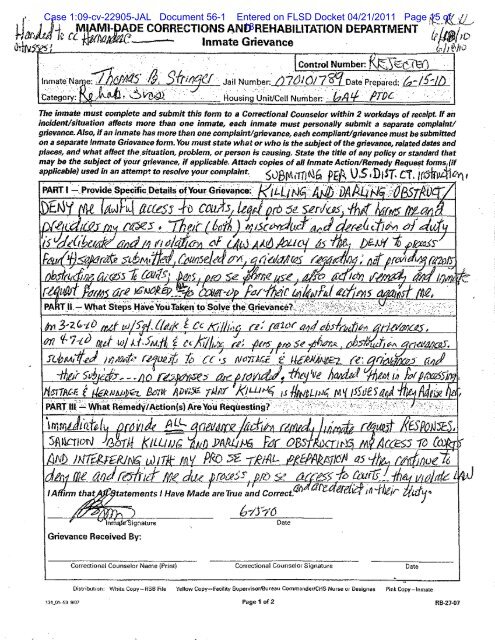 Case 1:09-cv-22905-JAL Document 56-1 Entered on FLSD Docket 04/21/2011 Page 15 of
Handed to CC Hernandez
MIAMI-DADE CORRECTIONS AND REHABILITATION DEPARTMENT
Inmate Grievance
6/18/10
Control Number: REJECTED
Inmate Name: Thomas B. Stringer Jail Number: 070101789 Date Prepared: 6-15-10
Category: Rehab. Svces Housing Unit/Cell Number: 6A4 PTDC
The inmate must complete and submit this form to a Correctional Counselor within 2 workdays of receipt. If an
incident/situation affects more than one inmate, each inmate must personally submit a separate complaint/
grievance. Also, if an inmate has more than one complaint/grievance, each compliant/grievance must be submitted
on a separate Inmate Grievance form. You must state what or who is the subject of the grievance, related dates and
places, and what affect the situation, problem, or person is causing. State the title of any policy or standard that
may be the subject of your grievance, if applicable. Attach copies of all Inmate Action/Remedy Request forms, (if
applicable) used in an attempt to resolve your complaint. SUBMITTING PER U.S. DIST. CT. instruction,
PART I – Provide Specific Details of Your Grievance: KILLING AND DARLING OBSTRUCT/
DENY me lawful access to courts, legal pro se services, that harms me and
prejudices my cases. Their (both) misconduct and dereliction of duty
is deliberate and in violation of LAW AND POLICY as they DENY to process
Four(4) separate submitted, counseled on, grievances regarding: not providing razors,
obstructing access to courts; pens, pro se phone use, also action remedy and inmate
request forms are IGNORED to cover-up for their unlawful actions against me.
PART II – What Steps Have You Taken to Solve the Grievance?
on 3-26-10 met w/Sgt. Clark & CC Killing re: razor and obstruction grievances.
on 4-7-10 met w/ Lt. Smith & CC Killing re: pens, pro se phone, obstruction grievances.
submitted inmate request to CC's NOTTAGE & HERNANDEZ re: grievances and
their subjects... no responses are provided, they've handed them in for processing
NOTTAGE & HERNANDEZ BOTH ADVISE THAT KILLING is HANDLING MY ISSUES and they Advise
PART III – What Remedy/Action(s) Are You Requesting?
immediately provide ALL grievance/action remedy/inmate request RESPONSES.
SANCTION BOTH KILLING AND DARLING FOR OBSTRUCTING MY ACCESS TO COURTS
AND INTERFERING WITH MY PRO SE TRIAL PREPARATION as they continue to
deny me and restrict me due process, pro se access to courts. they violate LAW
and are derelict in their duty.
I Affirm that All Statements I Have Made are True and Correct.
6-15-10
Inmate Signature Date
Grievance Received By:
Correctional Counselor Name (Print) Correctional Counselor Signature Date
Distribution: White Copy—RSB File Yellow Copy—Facility Supervisor/Bureau Commander/CHS Nurse or Designee Pink Copy - Inmate
131_01-53 9/07 Page 1 of 2 RB-27-07